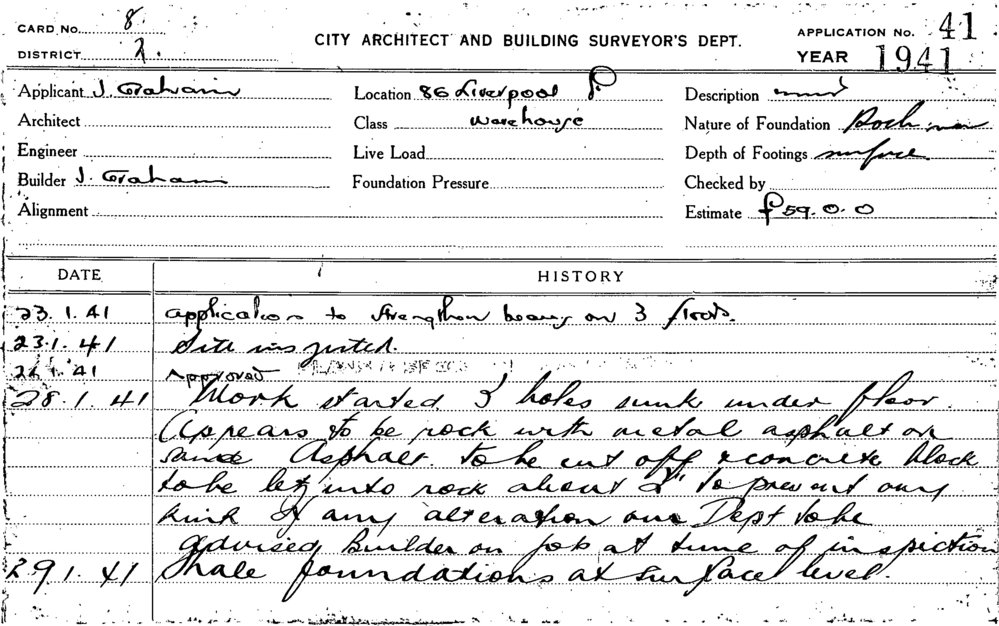 CARD No. 8.
DISTRICT 2.
CITY ARCHITECT AND BUILDING SURVEYOR'S DEPT.
APPLICATION No. 41
YEAR 1941
Applicant J. Graham
Location 86 Liverpool St
Description
Architect
Class Warehouse
Nature of Foundation Rock near
Engineer
Live Load
Depth of Footings surface
Builder J. Graham
Foundation Pressure
Checked by
Alignment
Estimate £59.0.0
DATE HISTORY
23.1.41 application to strengthen beams on 3 floors.
23.1.41 Site inspected.
.1.41 Approved
28.1.41 Work started 3 holes sunk under floor.
Appears to be rock with metal asphalt on
same Asphalt to be cut off & concrete block
to be let into rock about 2" to prevent any
kink If any alteration our Dept to be
advised Builder on job at time of inspection
29.1.41 Shale foundations at surface level.